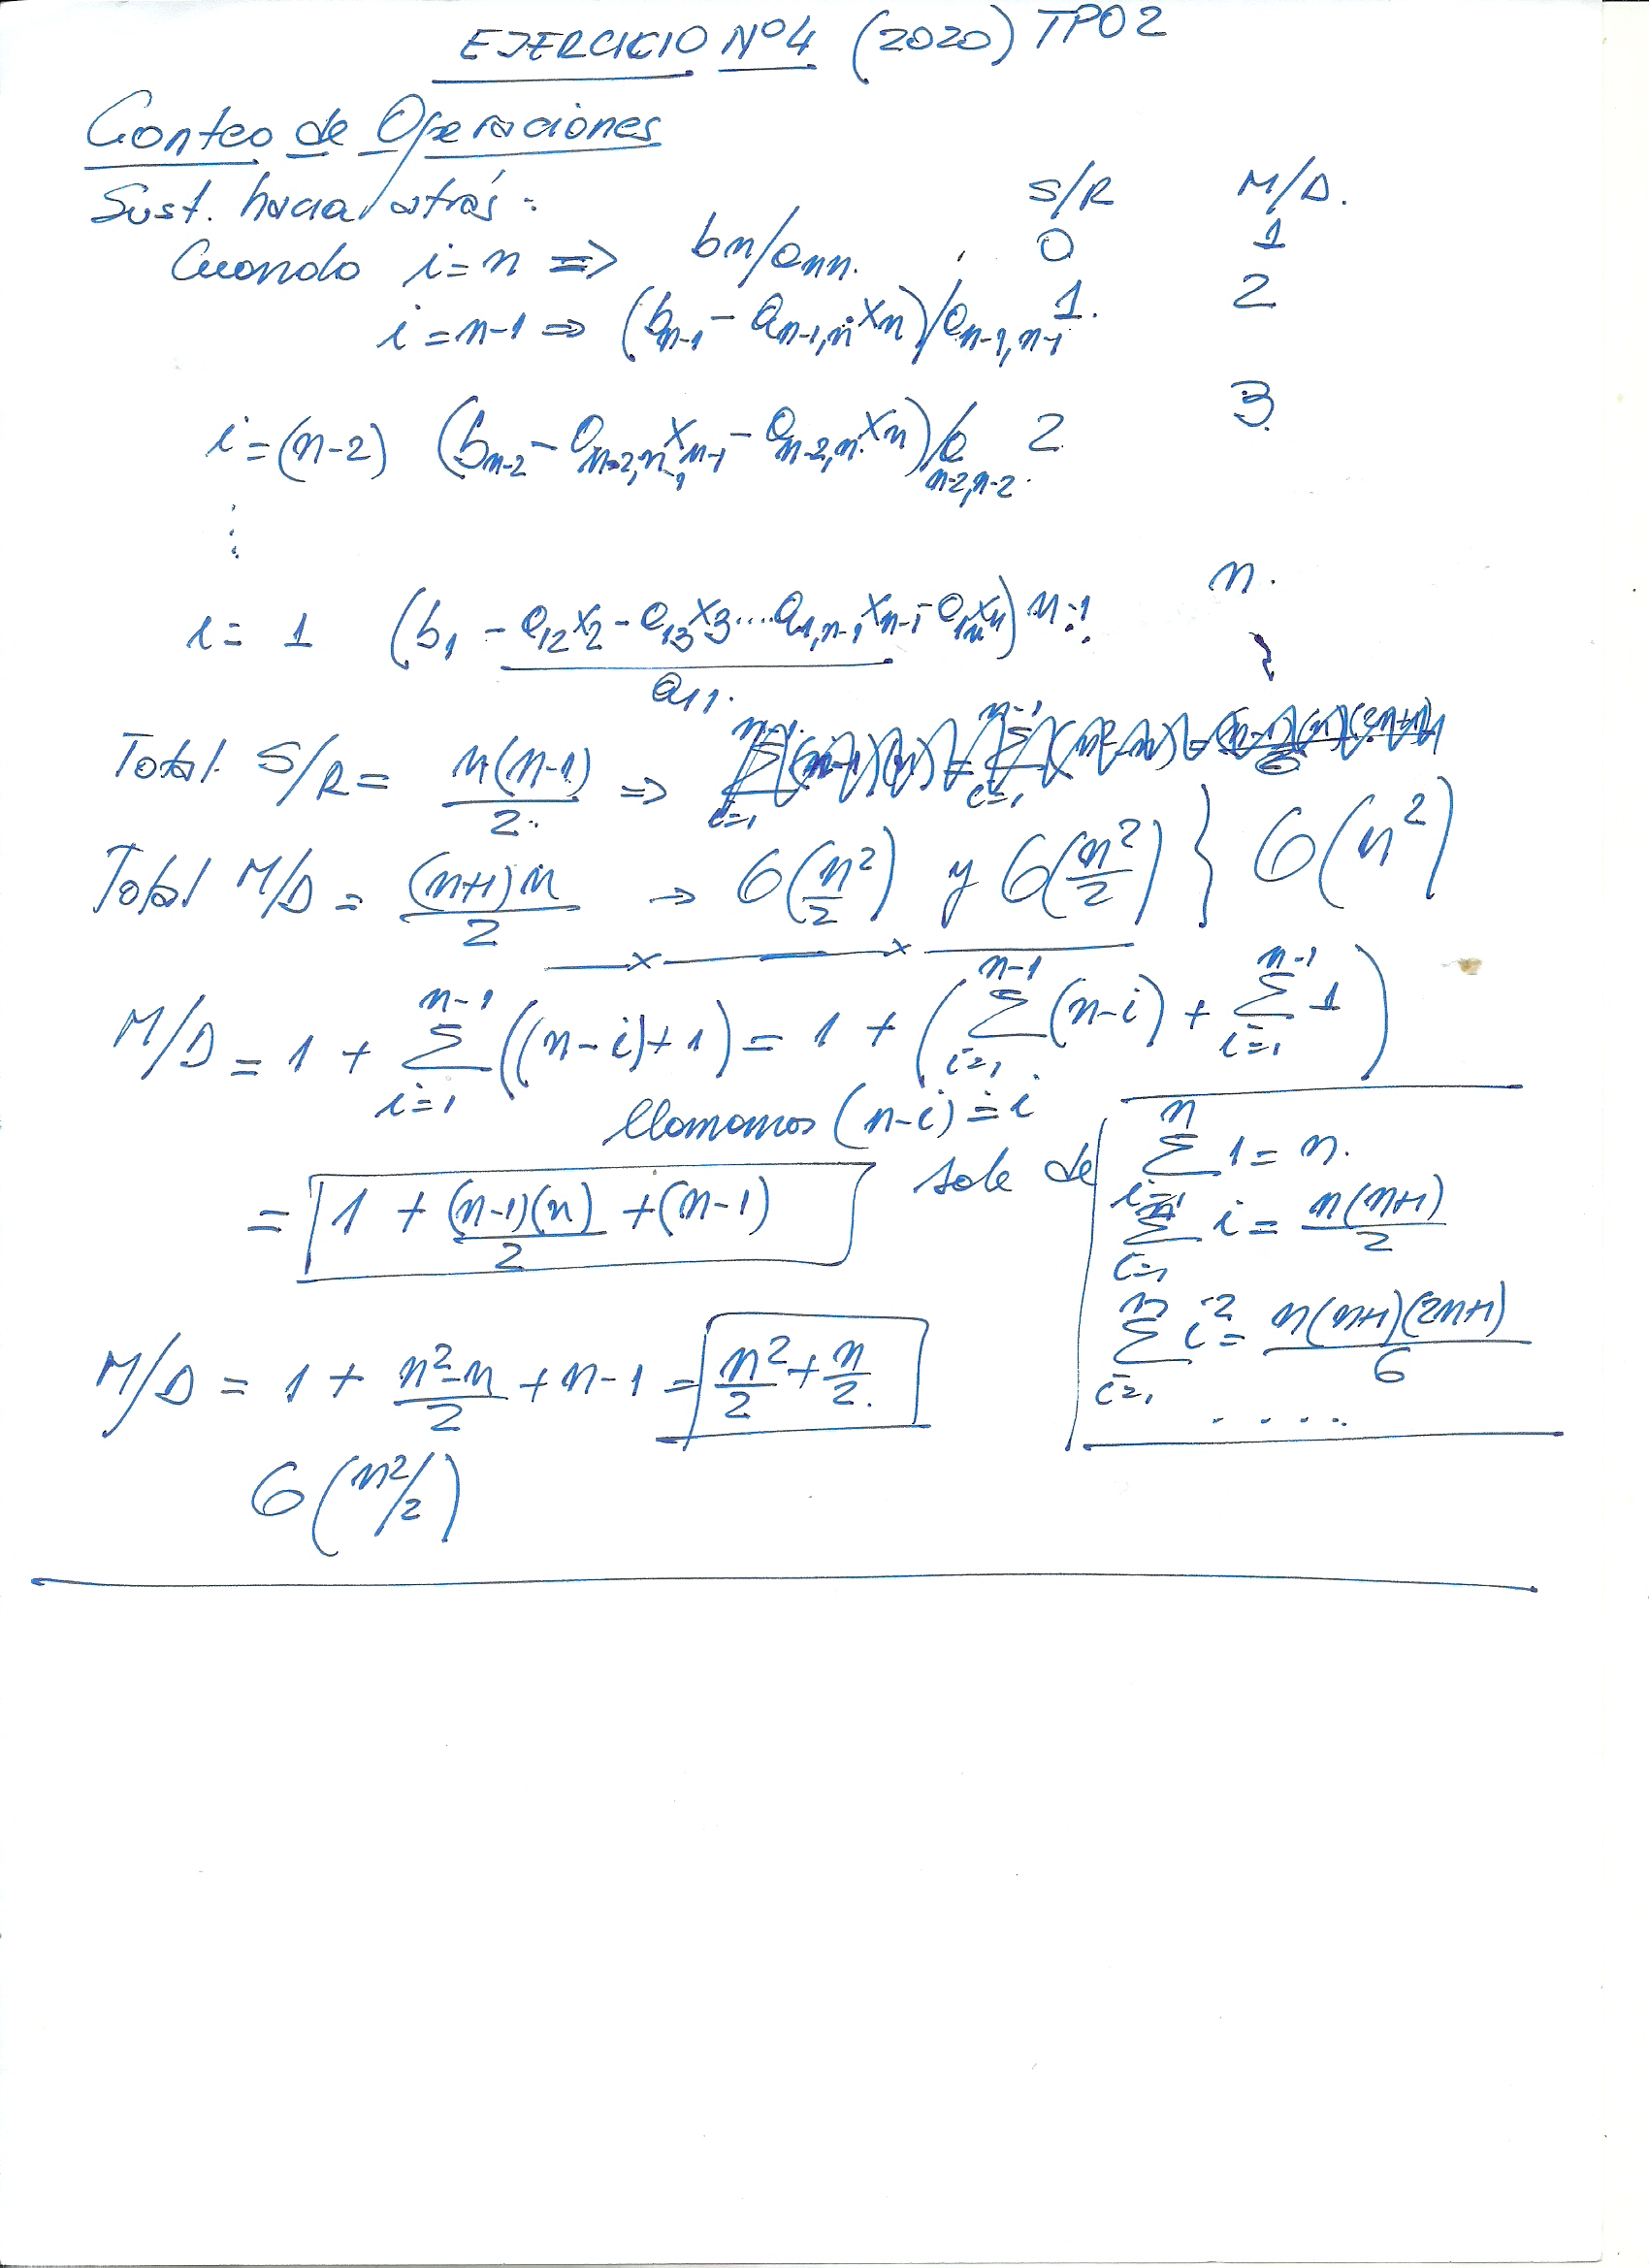 EJERCICIO Nº4 (2020) TPO2
Conteo de Operaciones
Sust. hacia atrás: S/R M/D.
Cuando i=n => bn/ann. 0 1
i=n-1 => (b_{n-1} - a_{n-1,n}.x_n)/a_{n-1,n-1} 1. 2
i=(n-2) (b_{n-2} - a_{n-2,n-1}x_{n-1} - a_{n-2,n}.x_n)/a_{n-2,n-2}. 2 3
⋮
i= 1 (b_1 - a_{12}x_2 - a_{13}x_3 .... a_{1,n-1}x_{n-1} - a_{1n}x_n) / a_{11}. n-1. n.
Total S/R = n(n-1)/2. =>
Total M/D = (n+1)n/2 → O(n²/2) y O(n²/2) } O(n²)
M/D = 1 + Σ_{i=1}^{n-1} ((n-i)+1) = 1 + (Σ_{i=1}^{n-1} (n-i) + Σ_{i=1}^{n-1} 1)
llamamos (n-i) = i
= 1 + (n-1)(n)/2 + (n-1)
sale de
Σ_{i=1}^{n} 1 = n.
Σ_{i=1}^{n} i = n(n+1)/2
Σ_{i=1}^{n} i² = n(n+1)(2n+1)/6
.....
M/D = 1 + (n²-n)/2 + n-1 = n²/2 + n/2.
O(n²/2)